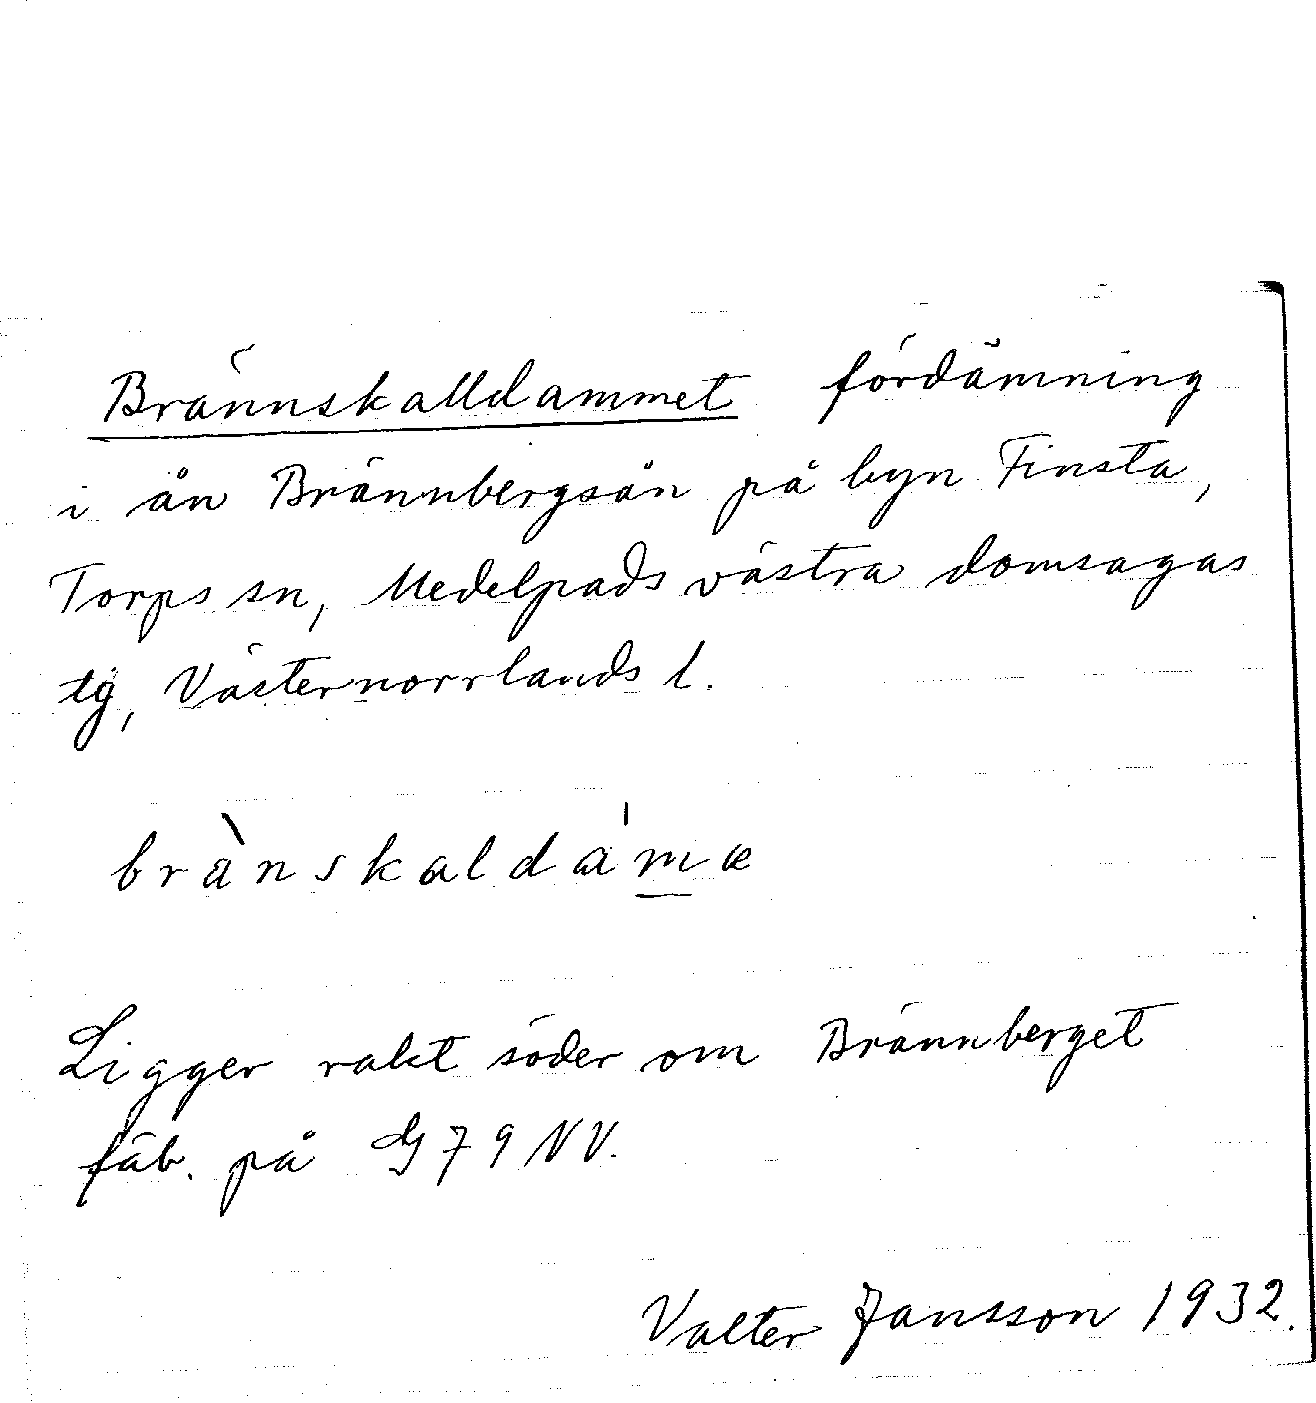 Brännskalldammet fördämning
i ån Brännbergsån på byn Finsta,
Torps sn, Medelpads västra domsagas
tg, Västernorrlands l.
brä̀nskaldaˈm̲æ
Ligger rakt söder om Brännberget
fäb. på G79NV.
Valter Jansson 1932.